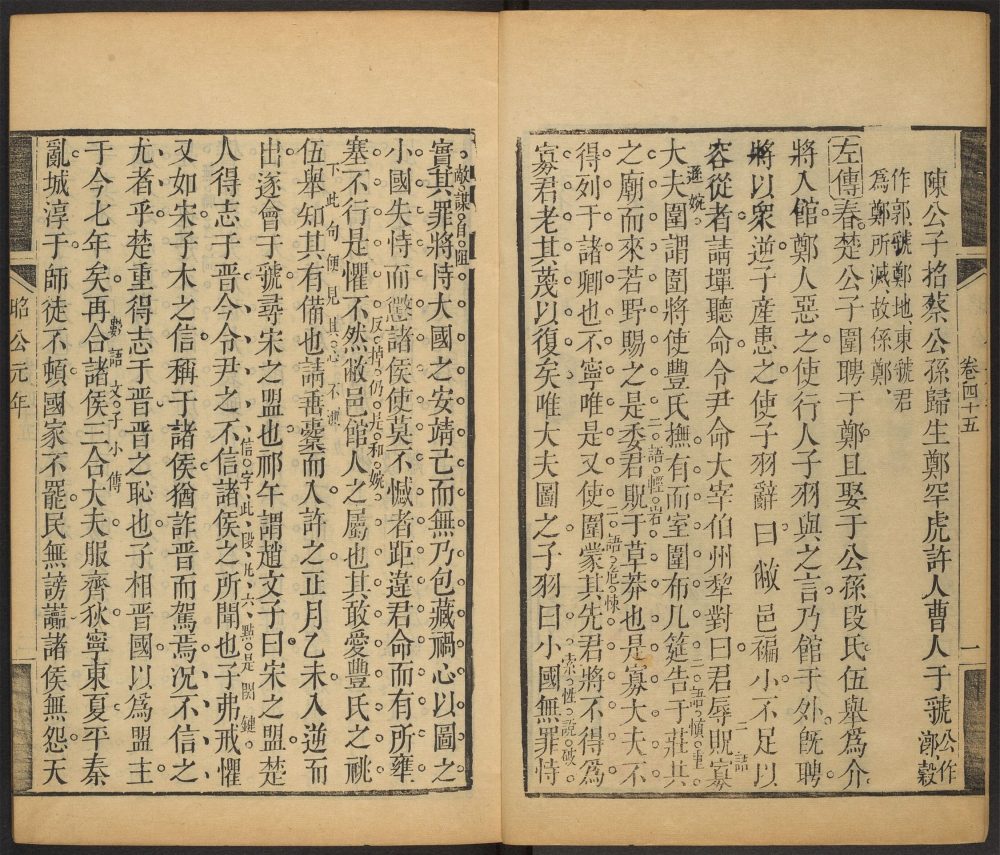 卷四十五
一
陳公子招蔡公孫歸生鄭罕虎許人曹人于虢公作漷穀
作郭虢鄭地東虢君
爲鄭所滅故係鄭
左傳春楚公子圍聘于鄭且娶于公孫段氏伍舉爲介
將入館鄭人惡之使行人子羽與之言乃館于外旣聘
將以衆逆子產患之使子羽辭曰敝邑褊小不足以
容從者請墠聽命令尹命大宰伯州犁對曰君辱貺寡
遜婉
一語
大夫圍謂圍將使豐氏撫有而室圍布几筵告于莊共
二語愼重
之廟而來若野賜之是委君貺于草莽也是寡大夫不
二語輕
得列于諸卿也不寧唯是又使圍蒙其先君將不得爲
二語
寡君老其蔑以復矣唯大夫圖之子羽曰小國無罪恃
說破
實其罪將恃大國之安靖己而無乃包藏禍心以圖之
敵謀自阻
小國失恃而懲諸侯使莫不憾者距違君命而有所壅
塞不行是懼不然敝邑館人之屬也其敢愛豐氏之祧
仍是和婉
伍舉知其有備也請垂櫜而入許之正月乙未入逆而
下此句便見其志不遜
出遂會于虢尋宋之盟也祁午謂趙文子曰宋之盟楚
人得志于晉今令尹之不信諸侯之所聞也子弗戒懼
信字此段凡六點是關鍵
又如宋子木之信稱于諸侯猶詐晉而駕焉況不信之
尤者乎楚重得志于晉晉之恥也子相晉國以爲盟主
于今七年矣再合諸侯三合大夫服齊狄寧東夏平秦
數語文子小傳
亂城淳于師徒不頓國家不罷民無謗讟諸侯無怨天
昭公元年